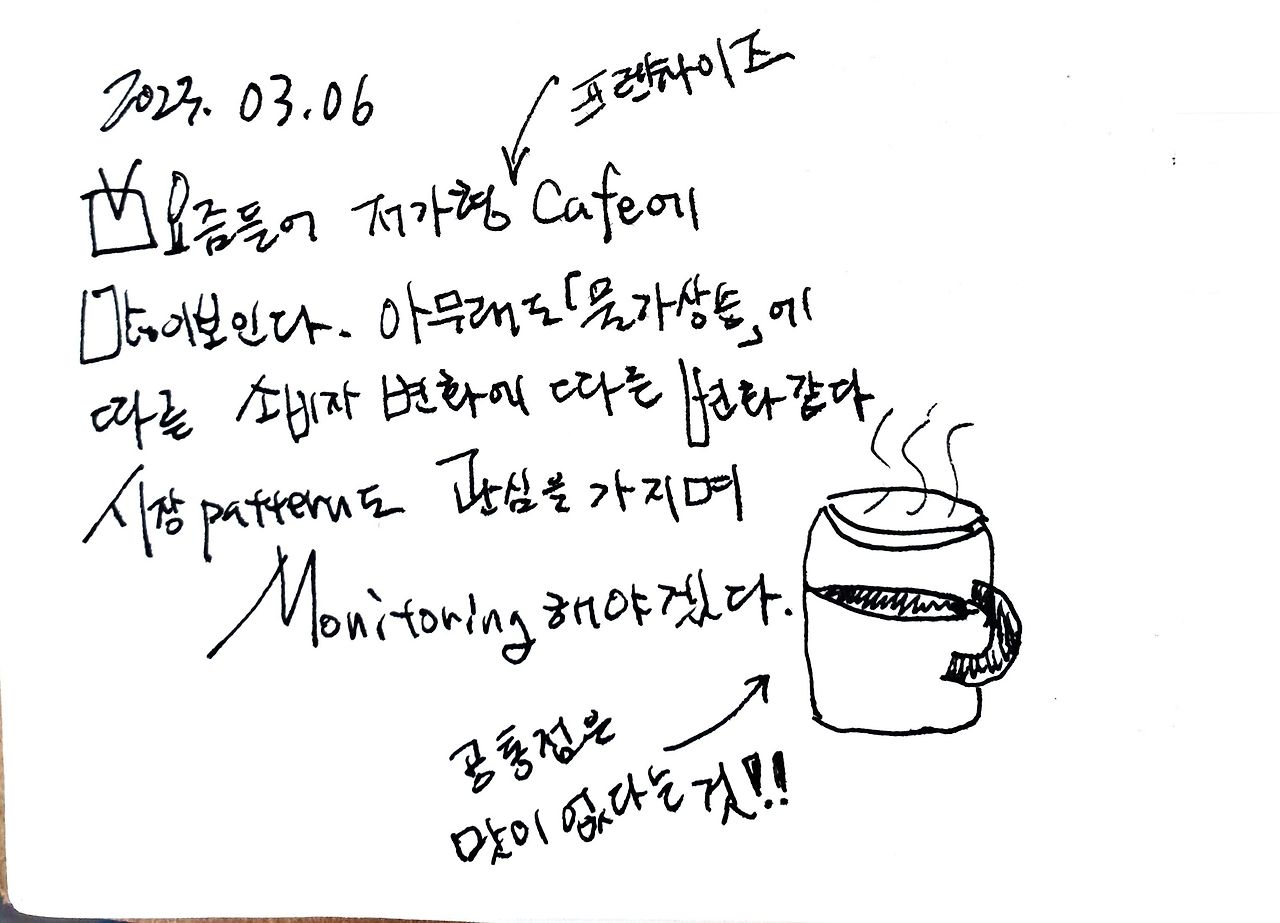 2023. 03.06
프랜차이즈
요즘들어 저가형 Cafe에
많이보인다. 아무래도「물가상승」에
따른 소비자 변화에 따른 변화같다
시장 pattern도 관심을 가지며
Monitoring 해야겠다.
공통점은
맛이 없다는 것!!